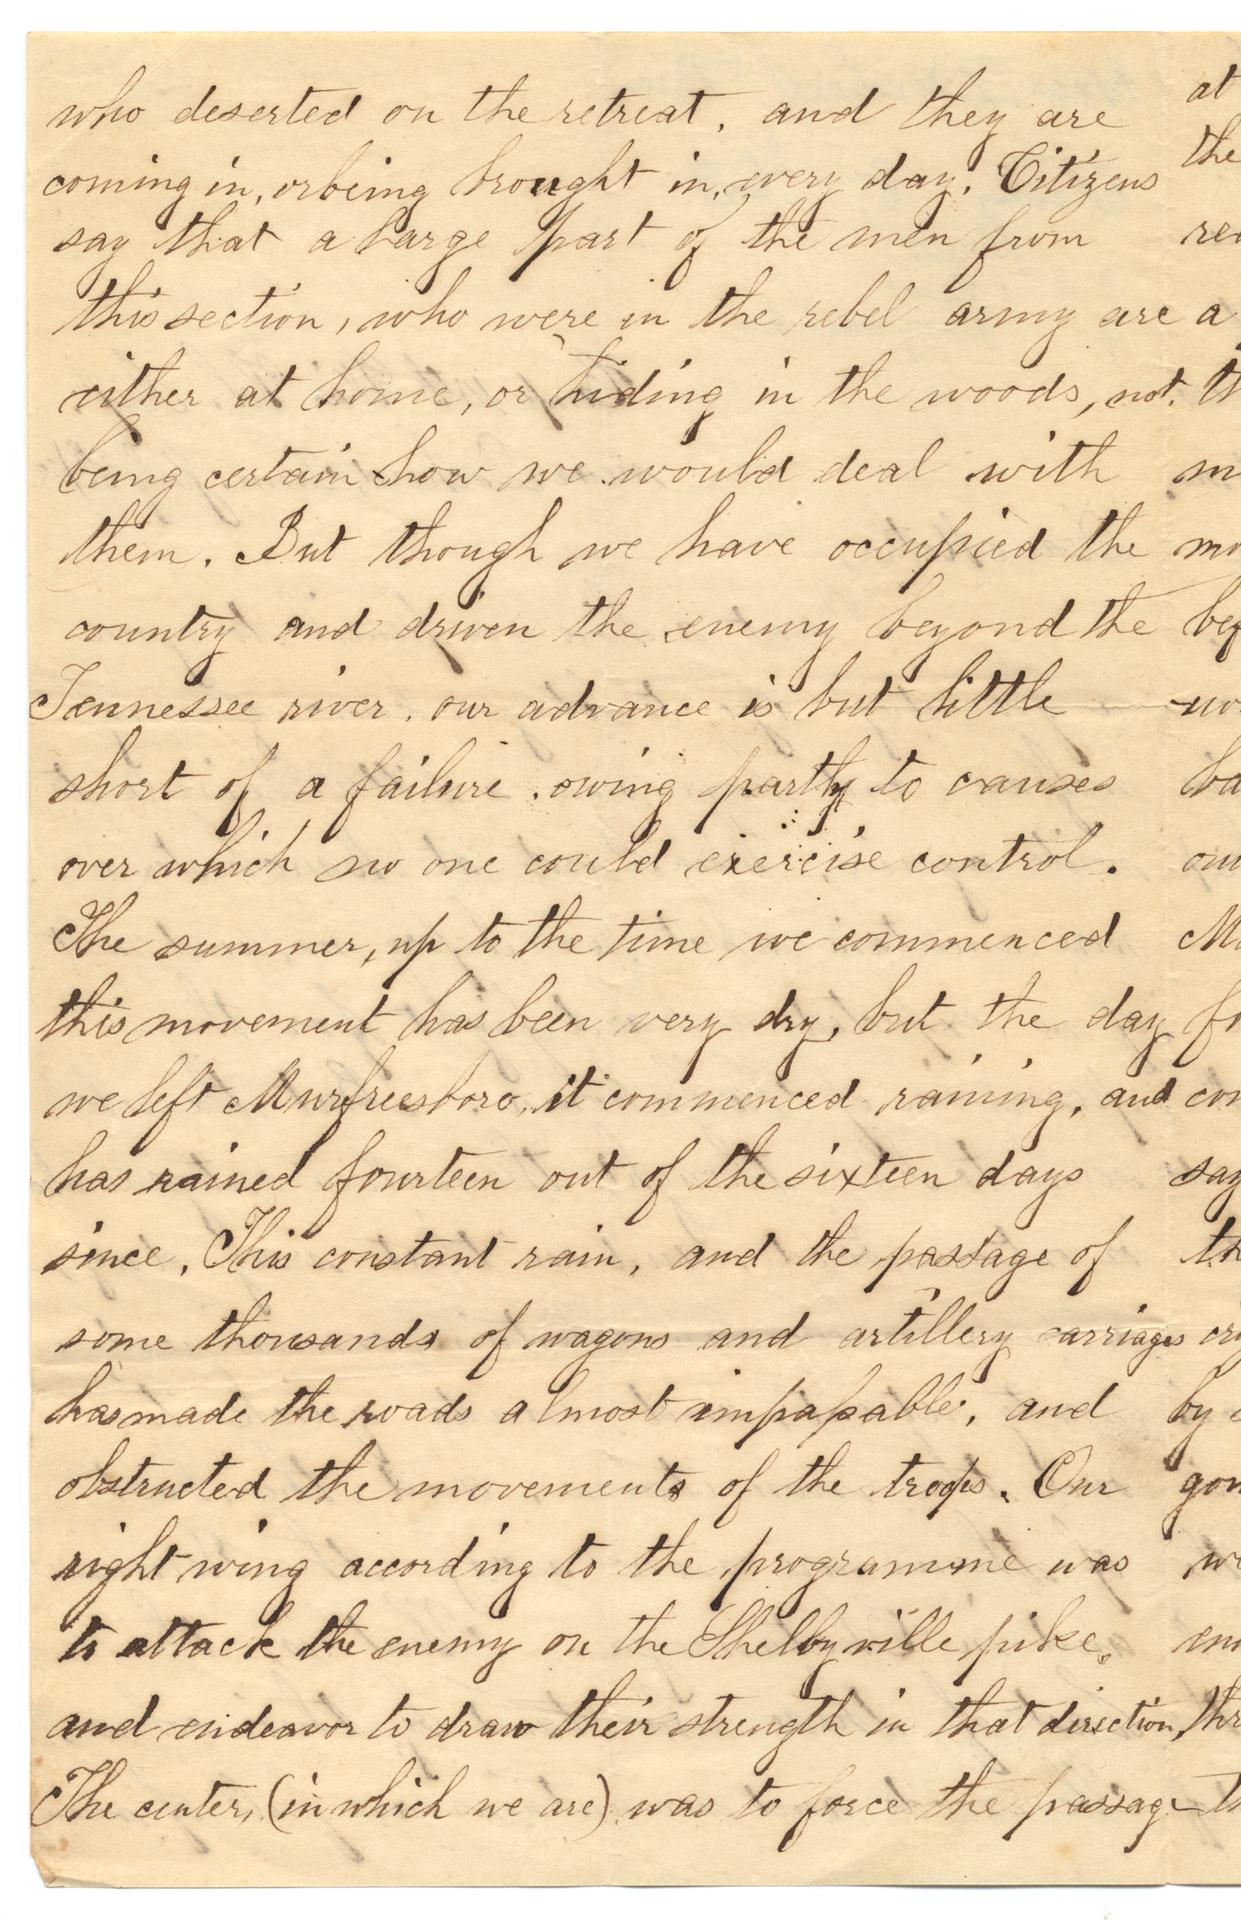 who deserted on the retreat, and they are
coming in, or being brought in, every day. Citizens
say that a large part of the men from
this section, who were in the rebel army are
either at home, or hiding in the woods, not
being certain how we would deal with
them. But though we have occupied the
country and driven the enemy beyond the
Tennessee river, our advance is but little
short of a failure, owing partly to causes
over which no one could exercise control.
The summer, up to the time we commenced
this movement has been very dry, but the day
we left Murfreesboro, it commenced raining, and
has rained fourteen out of the sixteen days
since. This constant rain, and the passage of
some thousands of wagons and artillery carriages
has made the roads almost impassable, and
obstructed the movements of the troops. Our
right wing according to the programme was
to attack the enemy on the Shelbyville pike,
and endeavor to draw their strength in that direction,
The center, (in which we are) was to force the passage
at
the
a
by